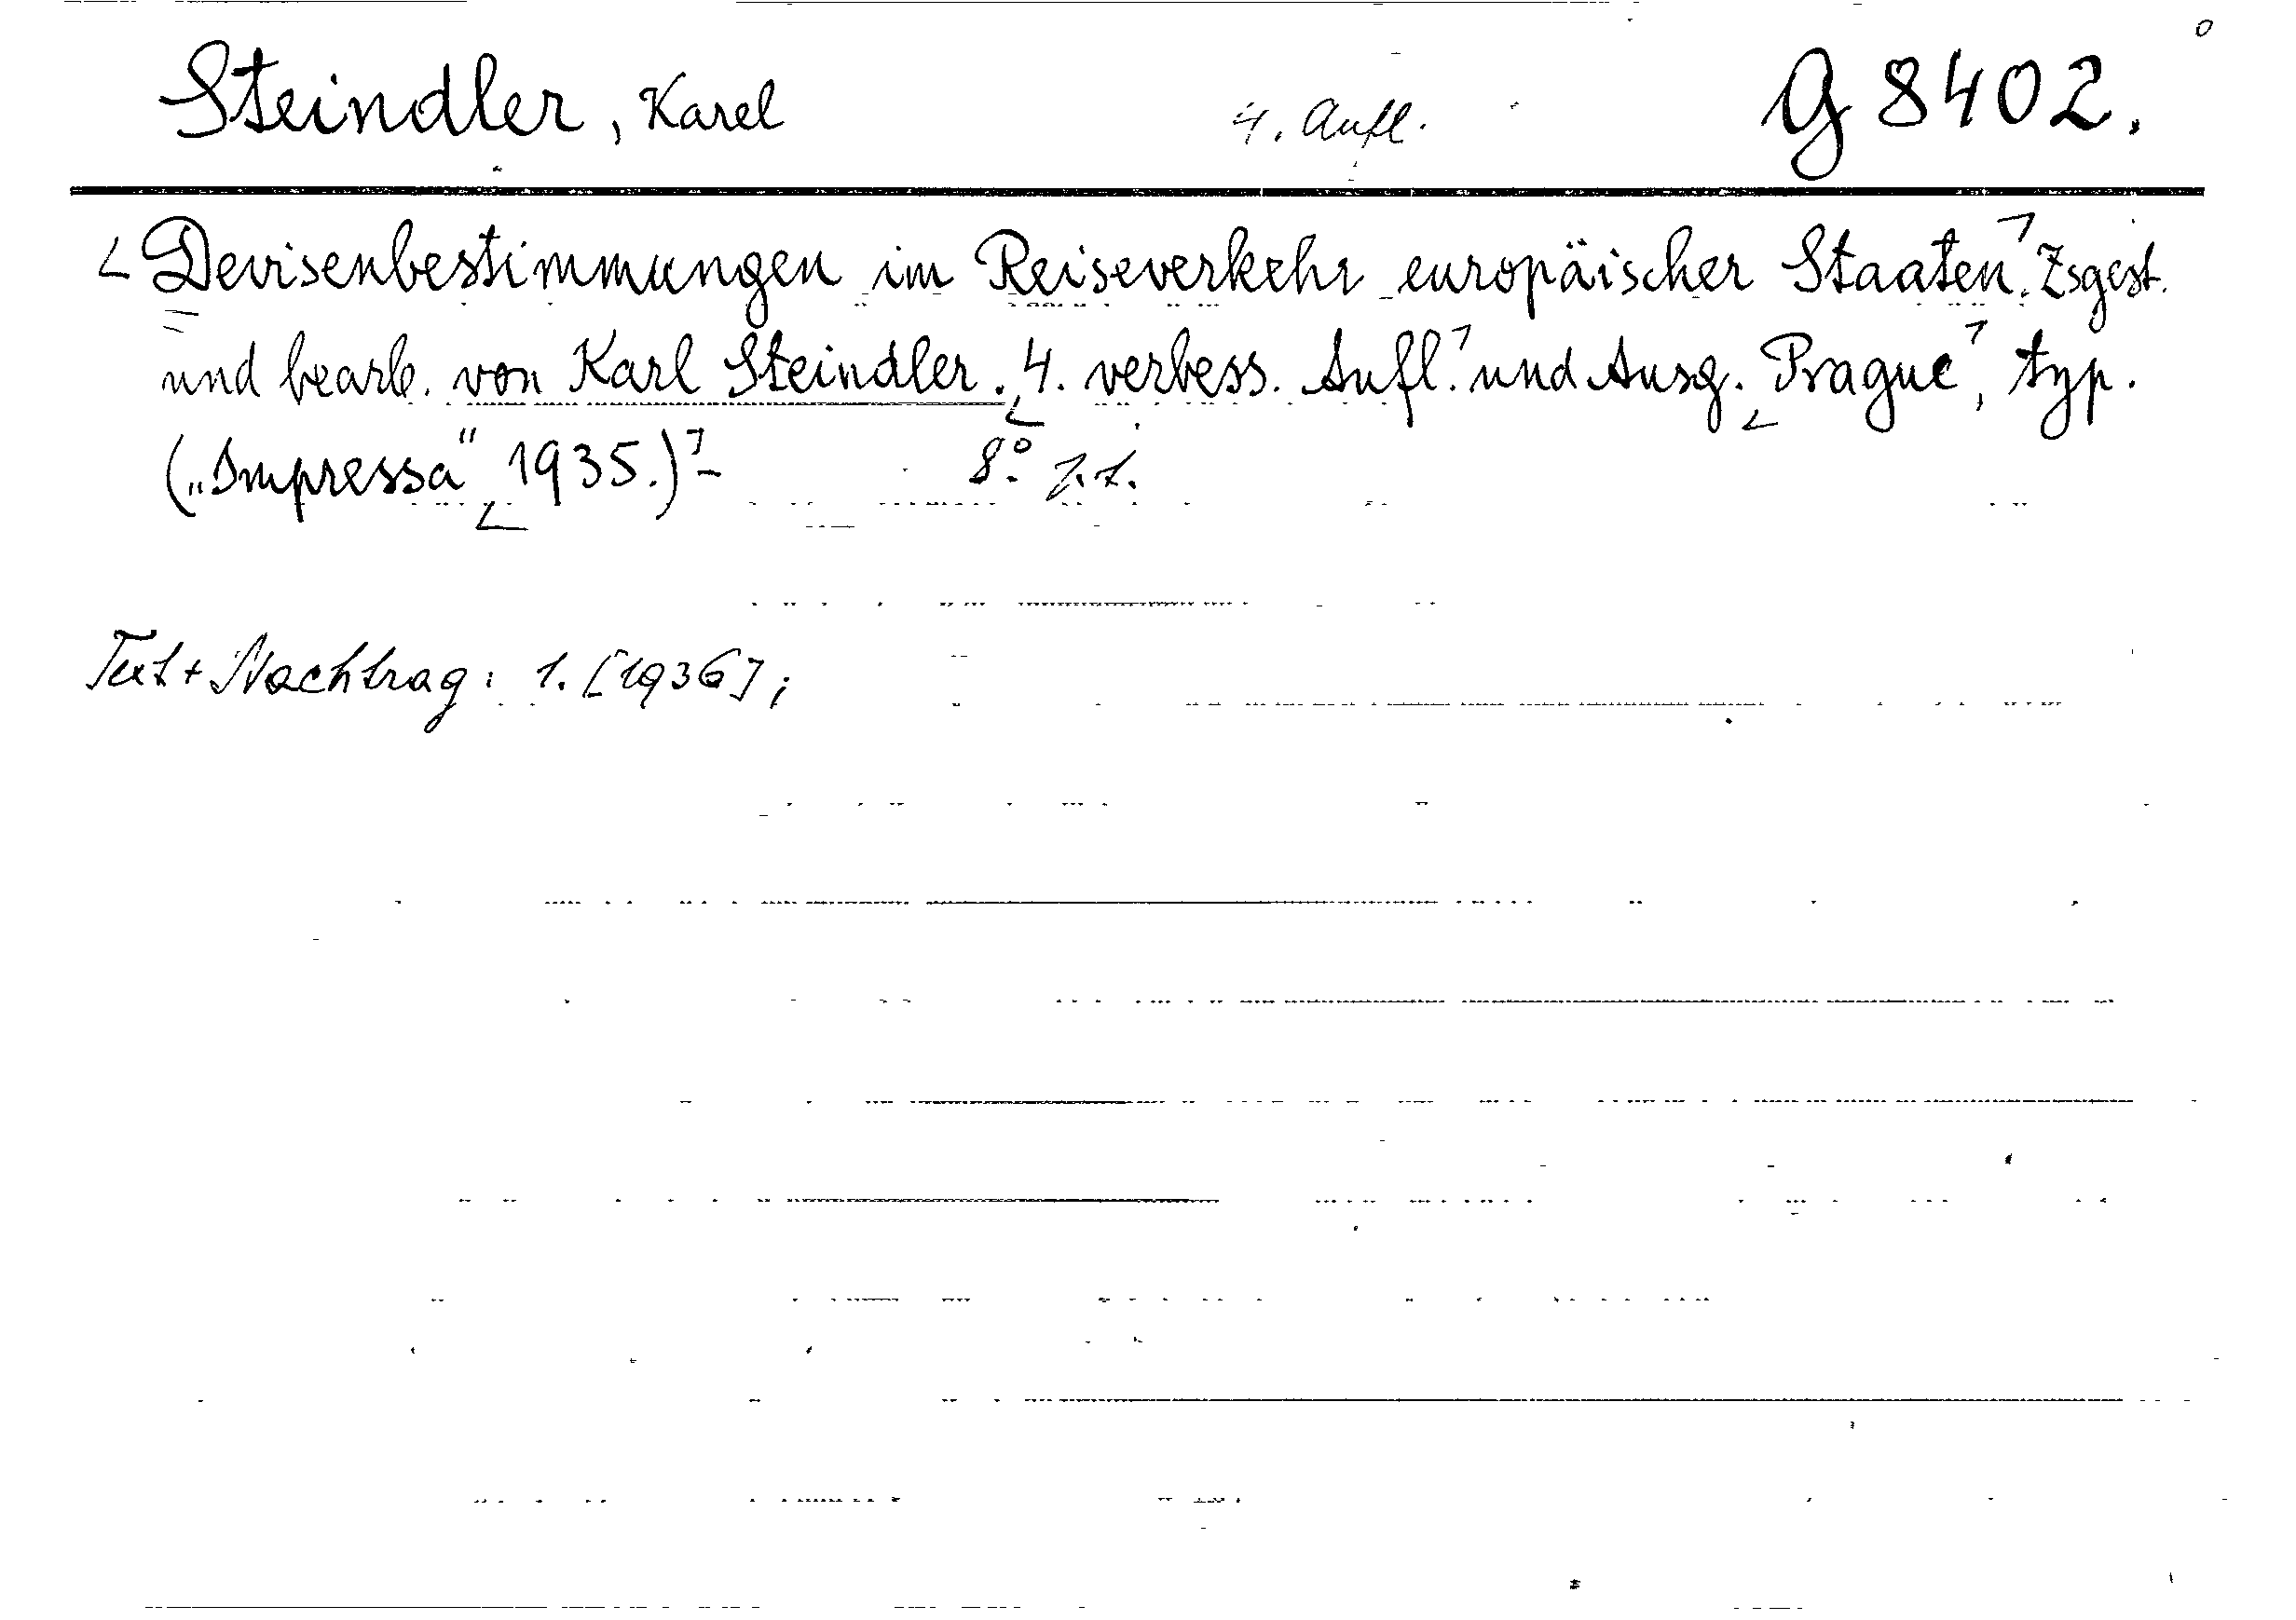 Steindler, Karel 4. Aufl. G 8402.
Devisenbestimmungen im Reiseverkehr europäischer Staaten. Zsgest.
und bearb. von Karl Steindler. 4. verbess. Aufl. und Ausg. Prague, typ.
(„Impressa" 1935.) - 8°.
Text + Nachtrag: 1. [1936];